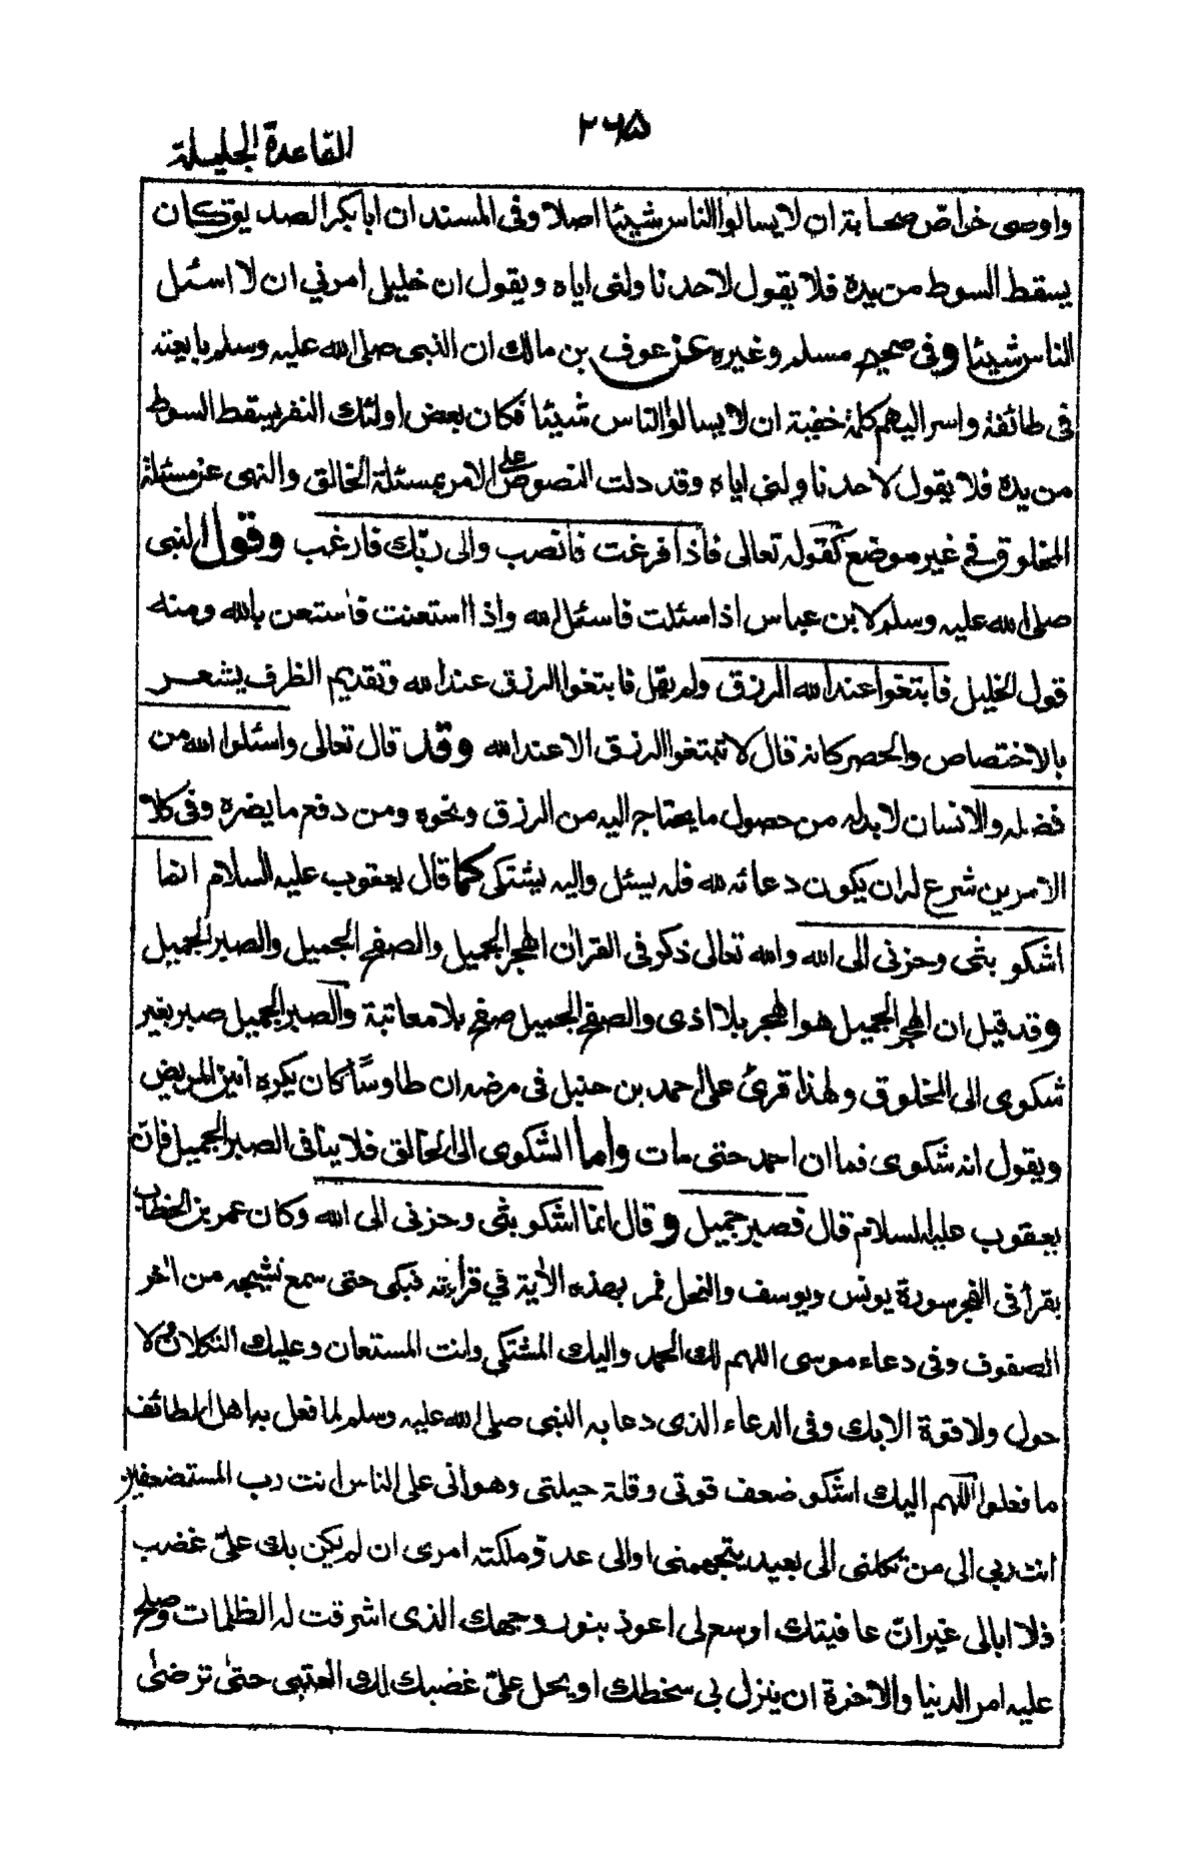 ٢٦٥
القاعدة الجليلة
واوصى خواصّ صحابة ان لا يسالوا الناس شيئا اصلا وفى المسند ان ابا بكر الصديق كان
يسقط السوط من يده فلا يقول لاحد ناولنى اياه ويقول ان خليلى امرني ان لا اسئل
الناس شيئا وفى صحيح مسلم وغيره عن عوف بن مالك ان النبى صلى الله عليه وسلم بايعته
فى طائفة واسر اليهم كلمة خفية ان لا يسالوا الناس شيئا فكان بعض اولئك النفر يسقط السوط
من يده فلا يقول لاحد ناولنى اياه وقد دلت النصوص على الامر بمسئلة الخالق والنهى عن مسئلة
المخلوق فى غير موضع كقوله تعالى فاذا فرغت فانصب والى ربّك فارغب وقول النبى
صلى الله عليه وسلم لابن عباس اذا سئلت فاسئل الله واذا استعنت فاستعن بالله ومنه
قول الخليل فابتغوا عند الله الرزق ولم يقل فابتغوا الرزق عند الله وتقديم الظرف يشعر
بالاختصاص والحصر كانه قال لا تبتغوا الرزق الا عند الله وقد قال تعالى واسئلوا الله من
فضله والانسان لا بد له من حصول ما يحتاج اليه من الرزق ونحوه ومن دفع ما يضره وفى كلا
الامرين شرع له ان يكون دعائه لله فله يسئل واليه يشتكى كما قال يعقوب عليه السلام انما
اشكو بثى وحزنى الى الله والله تعالى ذكر فى القران الهجر الجميل والصفح الجميل والصبر الجميل
وقد قيل ان الهجر الجميل هو الهجر بلا اذى والصفح الجميل صفح بلا معاتبة والصبر الجميل صبر بغير
شكوى الى المخلوق ولهذا قرئ على احمد بن حنبل فى مرضه ان طاوسًا كان يكره انين المريض
ويقول انه شكوى فما ان احمد حتى مات واما الشكوى الى الخالق فلا ينافى الصبر الجميل فان
يعقوب عليه السلام قال فصبر جميل وقال انما اشكو بثى وحزنى الى الله وكان عمر بن الخطاب
يقرأ فى الفجر سورة يونس ويوسف والنحل فمر بهذه الاية في قرأته فبكى حتى سمع نشيجه من اخر
الصفوف وفى دعاء موسى اللهم لك الحمد واليك المشتكى وانت المستعان وعليك التكلان ولا
حول ولا قوة الا بك وفى الدعاء الذى دعا به النبى صلى الله عليه وسلم لما فعل به اهل الطائف
ما فعلوا اللهم اليك اشكو ضعف قوتي وقلة حيلتى وهوانى على الناس انت رب المستضعفين
انت ربي الى من تكلنى الى بعيد يتجهمنى او الى عدو ملكته امرى ان لم يكن بك علىّ غضب
فلا ابالى غير انّ عافيتك اوسع لى اعوذ بنور وجهك الذى اشرقت له الظلمات وصلح
عليه امر الدنيا والاخرة ان ينزل بى سخطك او يحل علىّ غضبك لك العتبى حتى ترضى